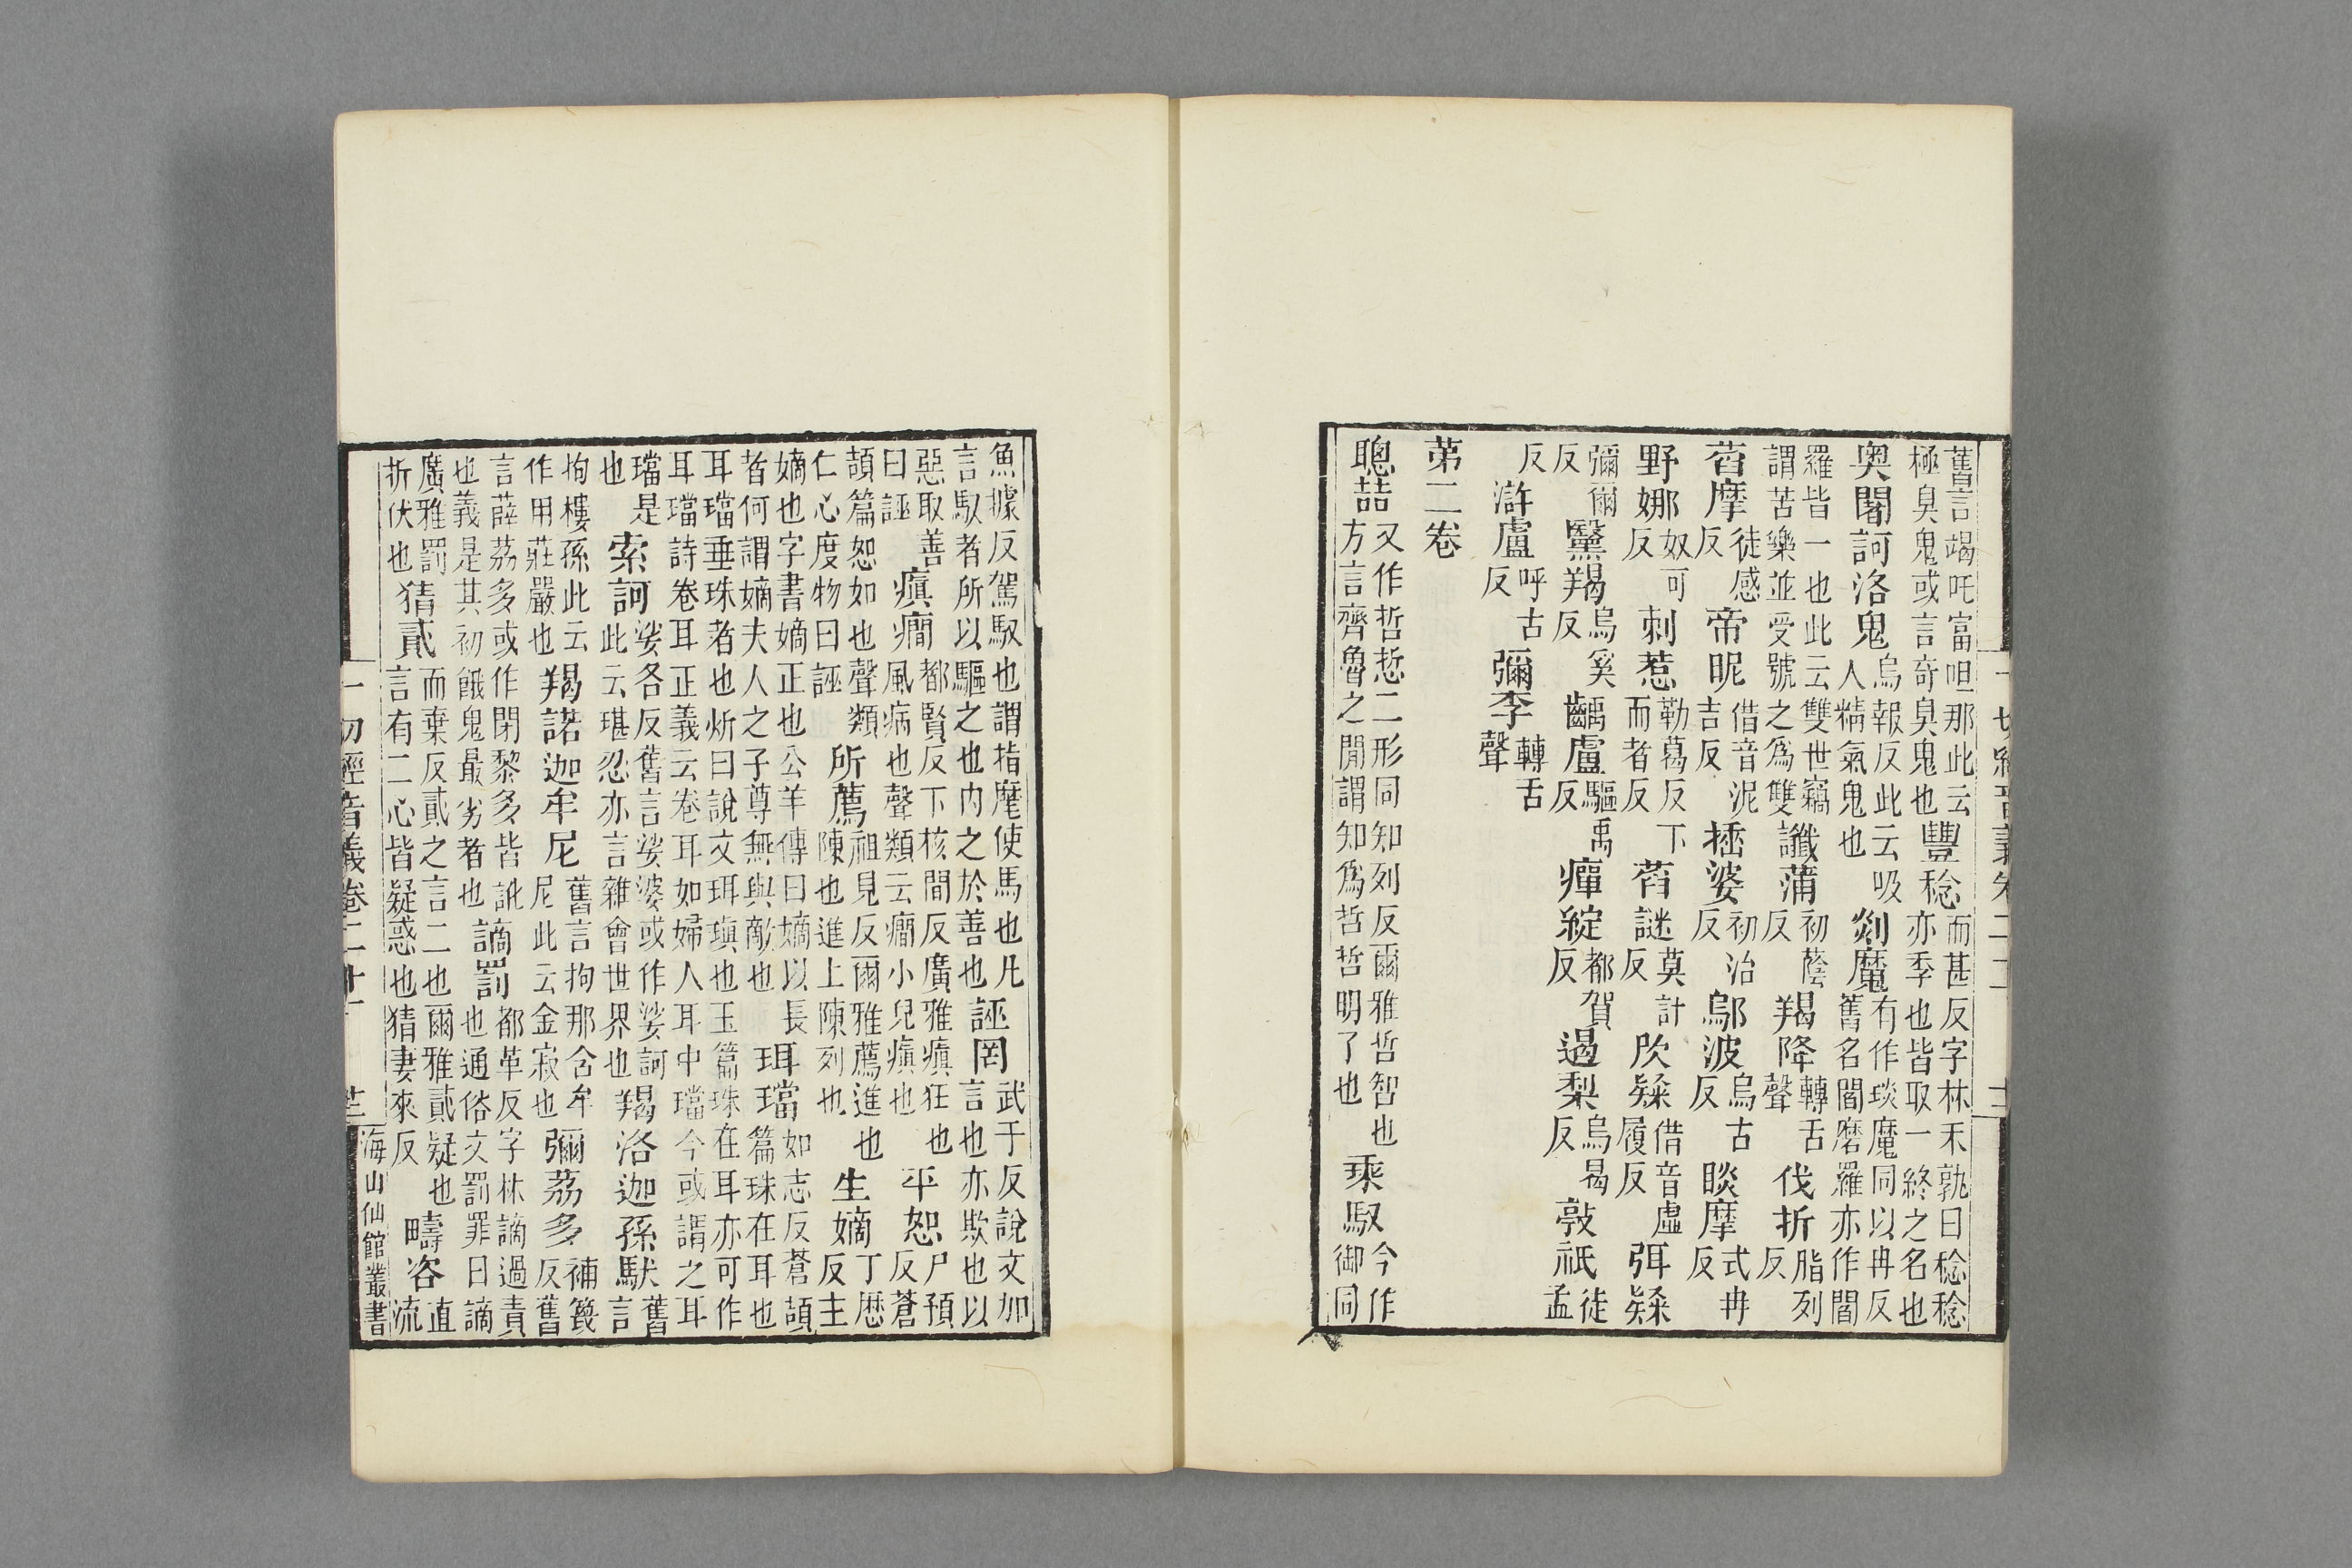 舊言竭吒富呾那此云
極臭鬼或言奇臭鬼也
豐稔
而甚反字林禾孰曰稔稔
亦季也皆取一終之名也
奥闍訶洛鬼
烏報反此云吸
人精氣鬼也
剡魔
有作琰魔同以冉反
舊名閻磨羅亦作閻
羅皆一也此云雙世竊
謂苦樂並受號之爲雙
讖蒲
初蔭
反
羯降
轉舌
聲
伐折
脂列
反
萏摩
徒感
反
帝昵
借音泥
吉反
插婆
初治
反
鄔波
烏古
反
睒摩
式冉
反
野娜
奴可
反
刺惹
勒葛反下
而者反
萏謎
莫計
反
欣㛅
借音虛
履反
弭㛅
彌爾
反
黳羯
烏奚
反
齲盧
驅禹
反
癉綻
都賀
反
遏梨
烏曷
反
敦祇
徒
孟
反
滸盧
呼古
反
彌李
轉舌
聲
苐二卷
聰喆
又作哲悊二形同知列反爾雅哲智也
方言齊魯之閒謂知爲哲哲明了也
乘馭
今作
御同
一切經音義卷二十一
魚據反駕馭也謂指麾使馬也凡
言馭者所以驅之也内之於善也
誣罔
武于反說文加
言也亦欺也以
惡取善
曰誣
瘨癎
都賢反下核間反廣雅瘨狂也
風病也聲類云癎小兒瘨也
平恕
尸預
反蒼
頡篇恕如也聲類
仁心度物曰誣
所薦
祖見反爾雅薦進也
陳也進上陳列也
生嫡
丁歷
反主
嫡也字書嫡正也公羊傳曰嫡以長
者何謂嫡夫人之子尊無與敵也
珥璫
如志反蒼頡
篇珠在耳也
耳璫垂珠者也炘曰說文珥瑱也玉篇珠在耳亦可作
耳璫詩卷耳正義云卷耳如婦人耳中璫今或謂之耳
璫是
也
索訶
娑各反舊言娑婆或作娑訶
此云堪忍亦言雜會世界也
羯洛迦孫馱
舊
言
拘樓孫此云
作用莊嚴也
羯諾迦牟尼
舊言拘那含牟
尼此云金寂也
彌荔多
補篾
反舊
言薜荔多或作閉黎多皆訛
也義是其初餓鬼最劣者也
謫罰
都革反字林謫過責
也通俗文罰罪曰謫
廣雅罰
折伏也
猜貳
而棄反貳之言二也爾雅貳疑也
言有二心皆疑惑也猜妻來反
疇咨
直
流
一切經音義卷二十一
海山仙館叢書